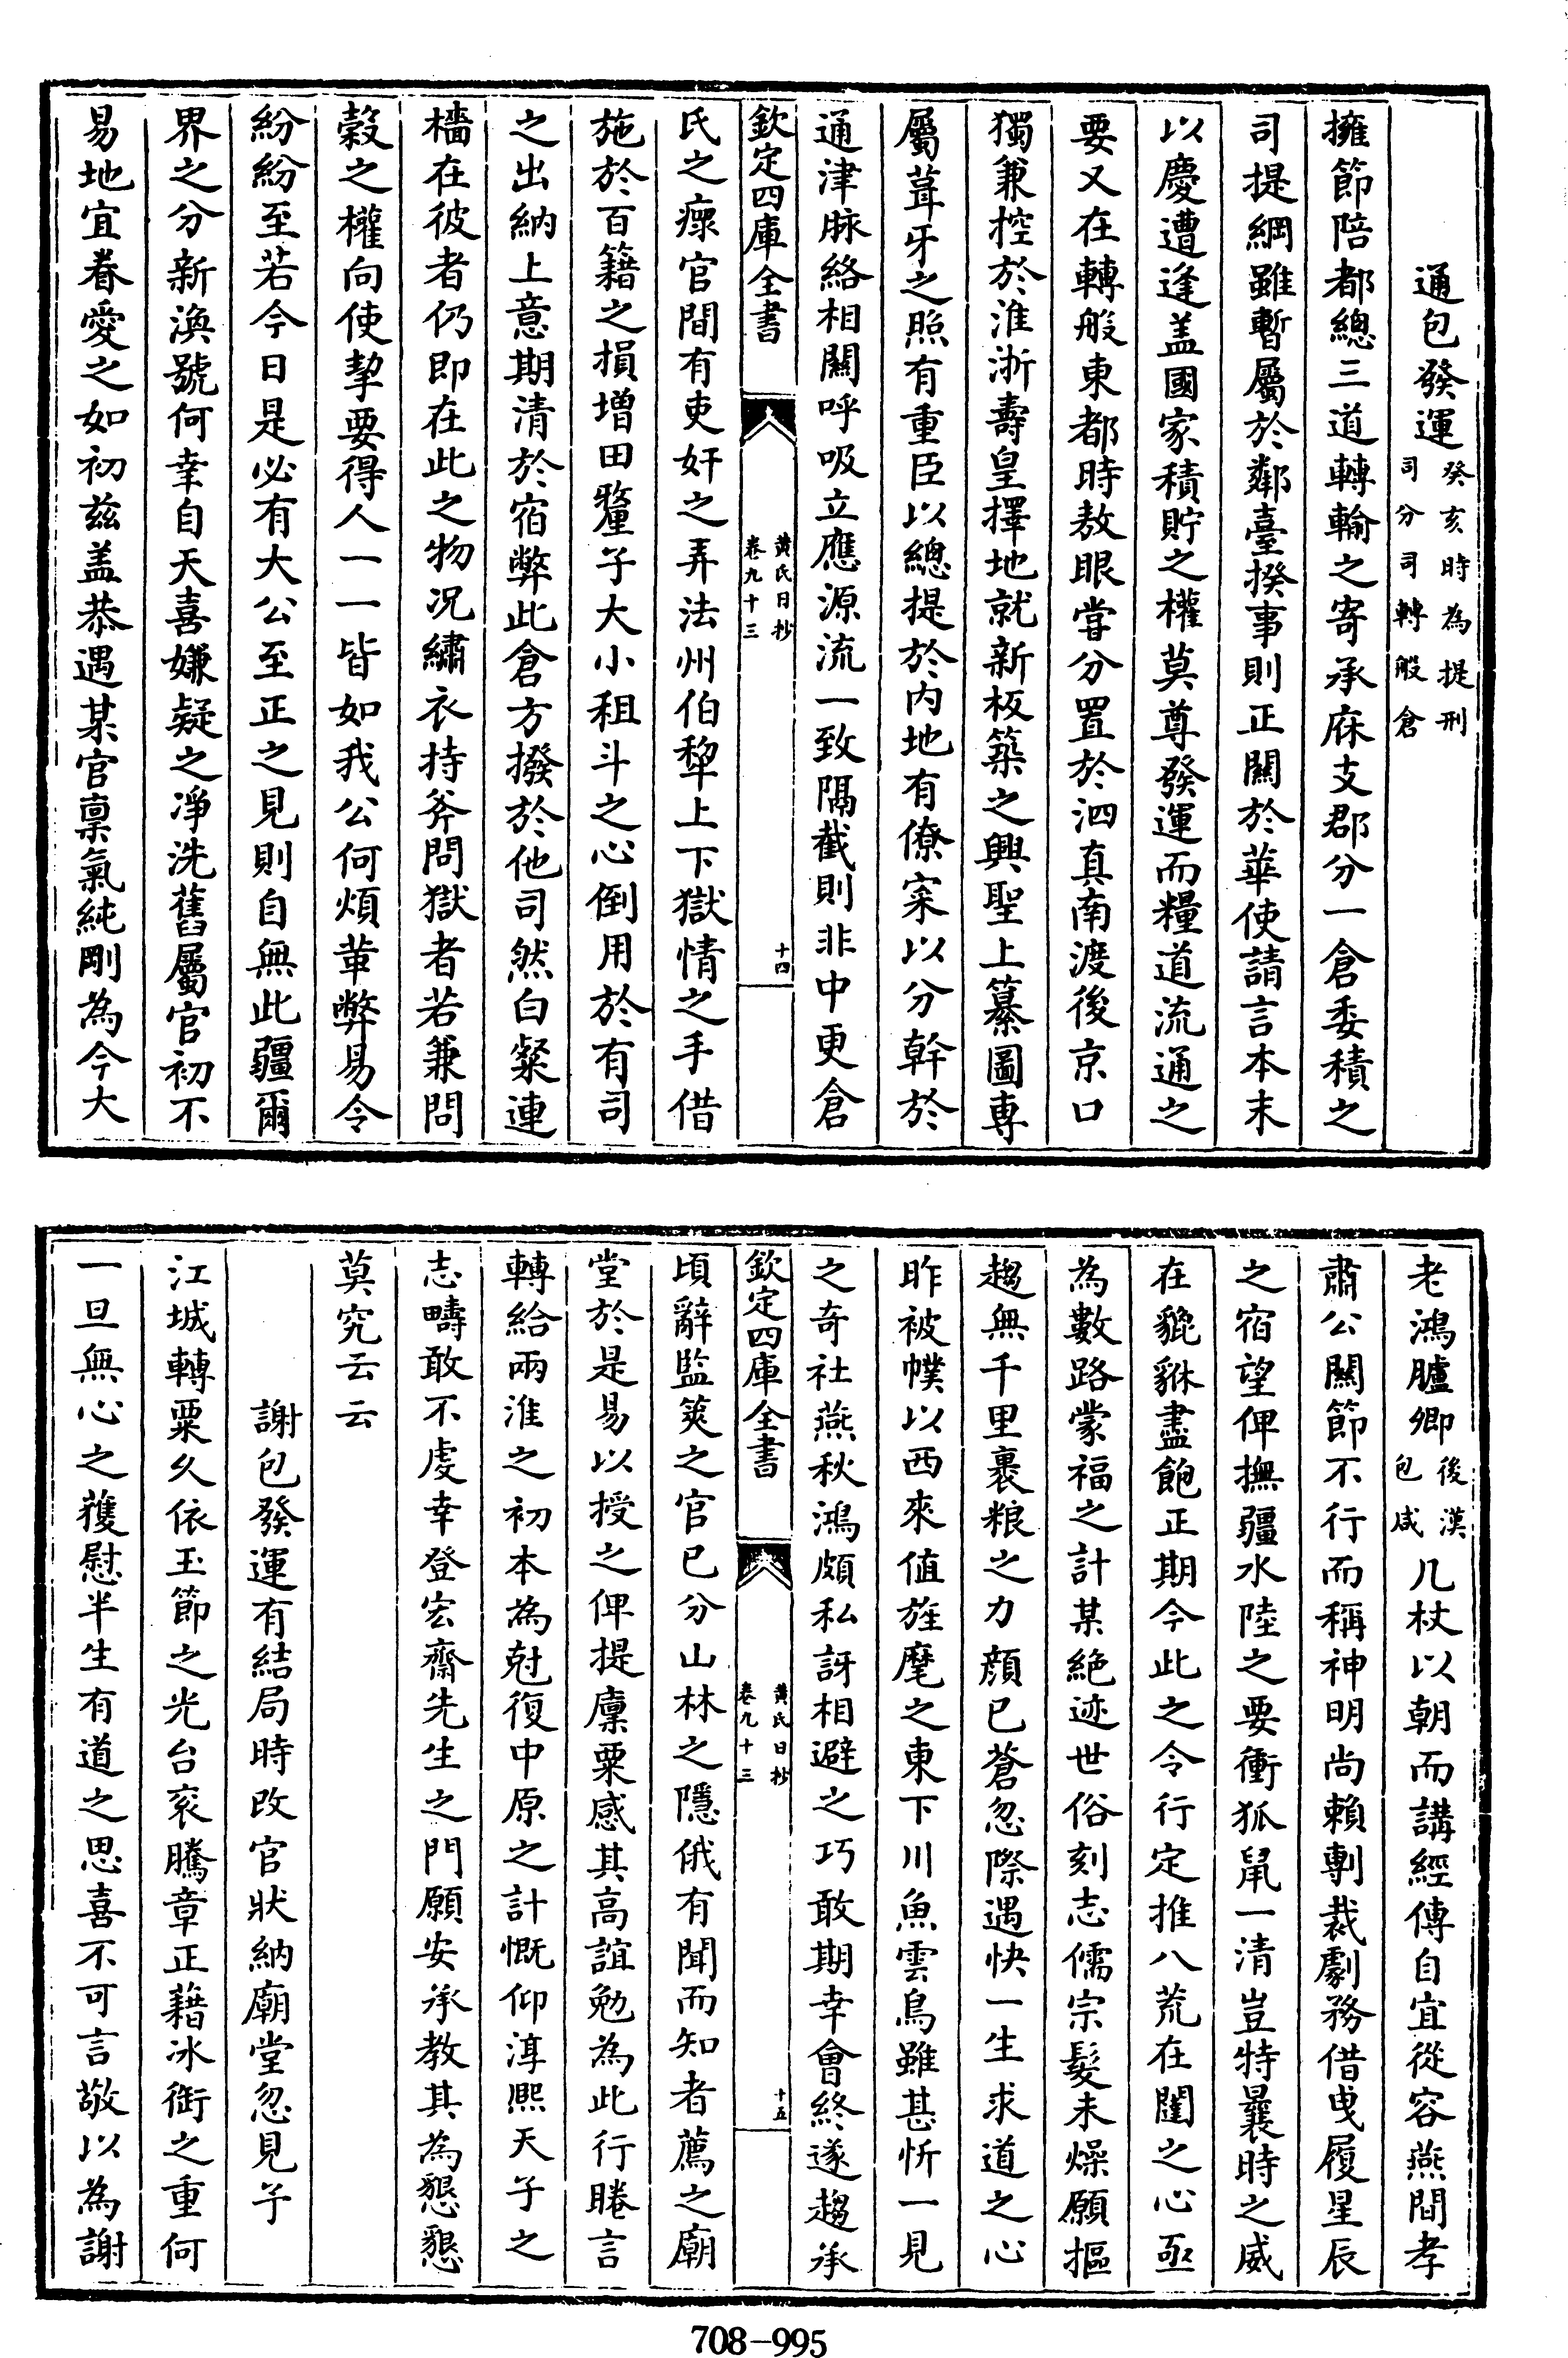 通包發運癸亥時為提刑司分司轉般倉
擁節陪都總三道轉輸之寄承庥支郡分一倉委積之
司提綱雖暫屬於鄰臺揆事則正關於華使請言本末
以慶遭逢盖國家積貯之權莫尊發運而糧道流通之
要又在轉般東都時敖眼嘗分置於泗真南渡後京口
獨兼控於淮浙壽皇擇地就新板築之興聖上纂圖專
屬葺牙之照有重臣以總提於内地有僚寀以分幹於
通津脉絡相關呼吸立應源流一致隔截則非中更倉
欽定四庫全書 黄氏日抄 卷九十三 十四
氏之瘝官間有吏奸之弄法州伯犂上下獄情之手借
施於百籍之損增田釐子大小租斗之心倒用於有司
之出納上意期清於宿弊此倉方撥於他司然白粲連
檣在彼者仍即在此之物况繡衣持斧問獄者若兼問
穀之權向使挈要得人一一皆如我公何煩革弊易令
紛紛至若今日是必有大公至正之見則自無此疆爾
界之分新渙號何幸自天喜嫌疑之凈洗舊屬官初不
易地宜眷愛之如初兹盖恭遇某官禀氣純剛為今大
老鴻臚卿後漢包咸几杖以朝而講經傳自宜從容燕間孝
肅公關節不行而稱神明尚賴剸裁劇務借曳履星辰
之宿望俾撫疆水陸之要衝狐鼠一清豈特曩時之威
在貔貅盡飽正期今此之令行定推八荒在闥之心亟
為數路蒙福之計某絶迹世俗刻志儒宗髮未燥願摳
趨無千里裹粮之力顔已蒼忽際遇快一生求道之心
昨被幞以西來值旌麾之東下川魚雲鳥雖甚忻一見
之奇社燕秋鴻頗私訝相避之巧敢期幸會終遂趨承
欽定四庫全書 黄氏日抄 卷九十三 十五
頃辭監筴之官已分山林之隱俄有聞而知者薦之廟
堂於是易以授之俾提廩粟感其高誼勉為此行睠言
轉給兩淮之初本為尅復中原之計慨仰淳熙天子之
志疇敢不虔幸登宏齋先生之門願安承教其為懇懇
莫究云云
謝包發運有結局時改官狀納廟堂忽見予
江城轉粟久依玉節之光台衮騰章正藉冰銜之重何
一旦無心之獲慰半生有道之思喜不可言敬以為謝
708-995